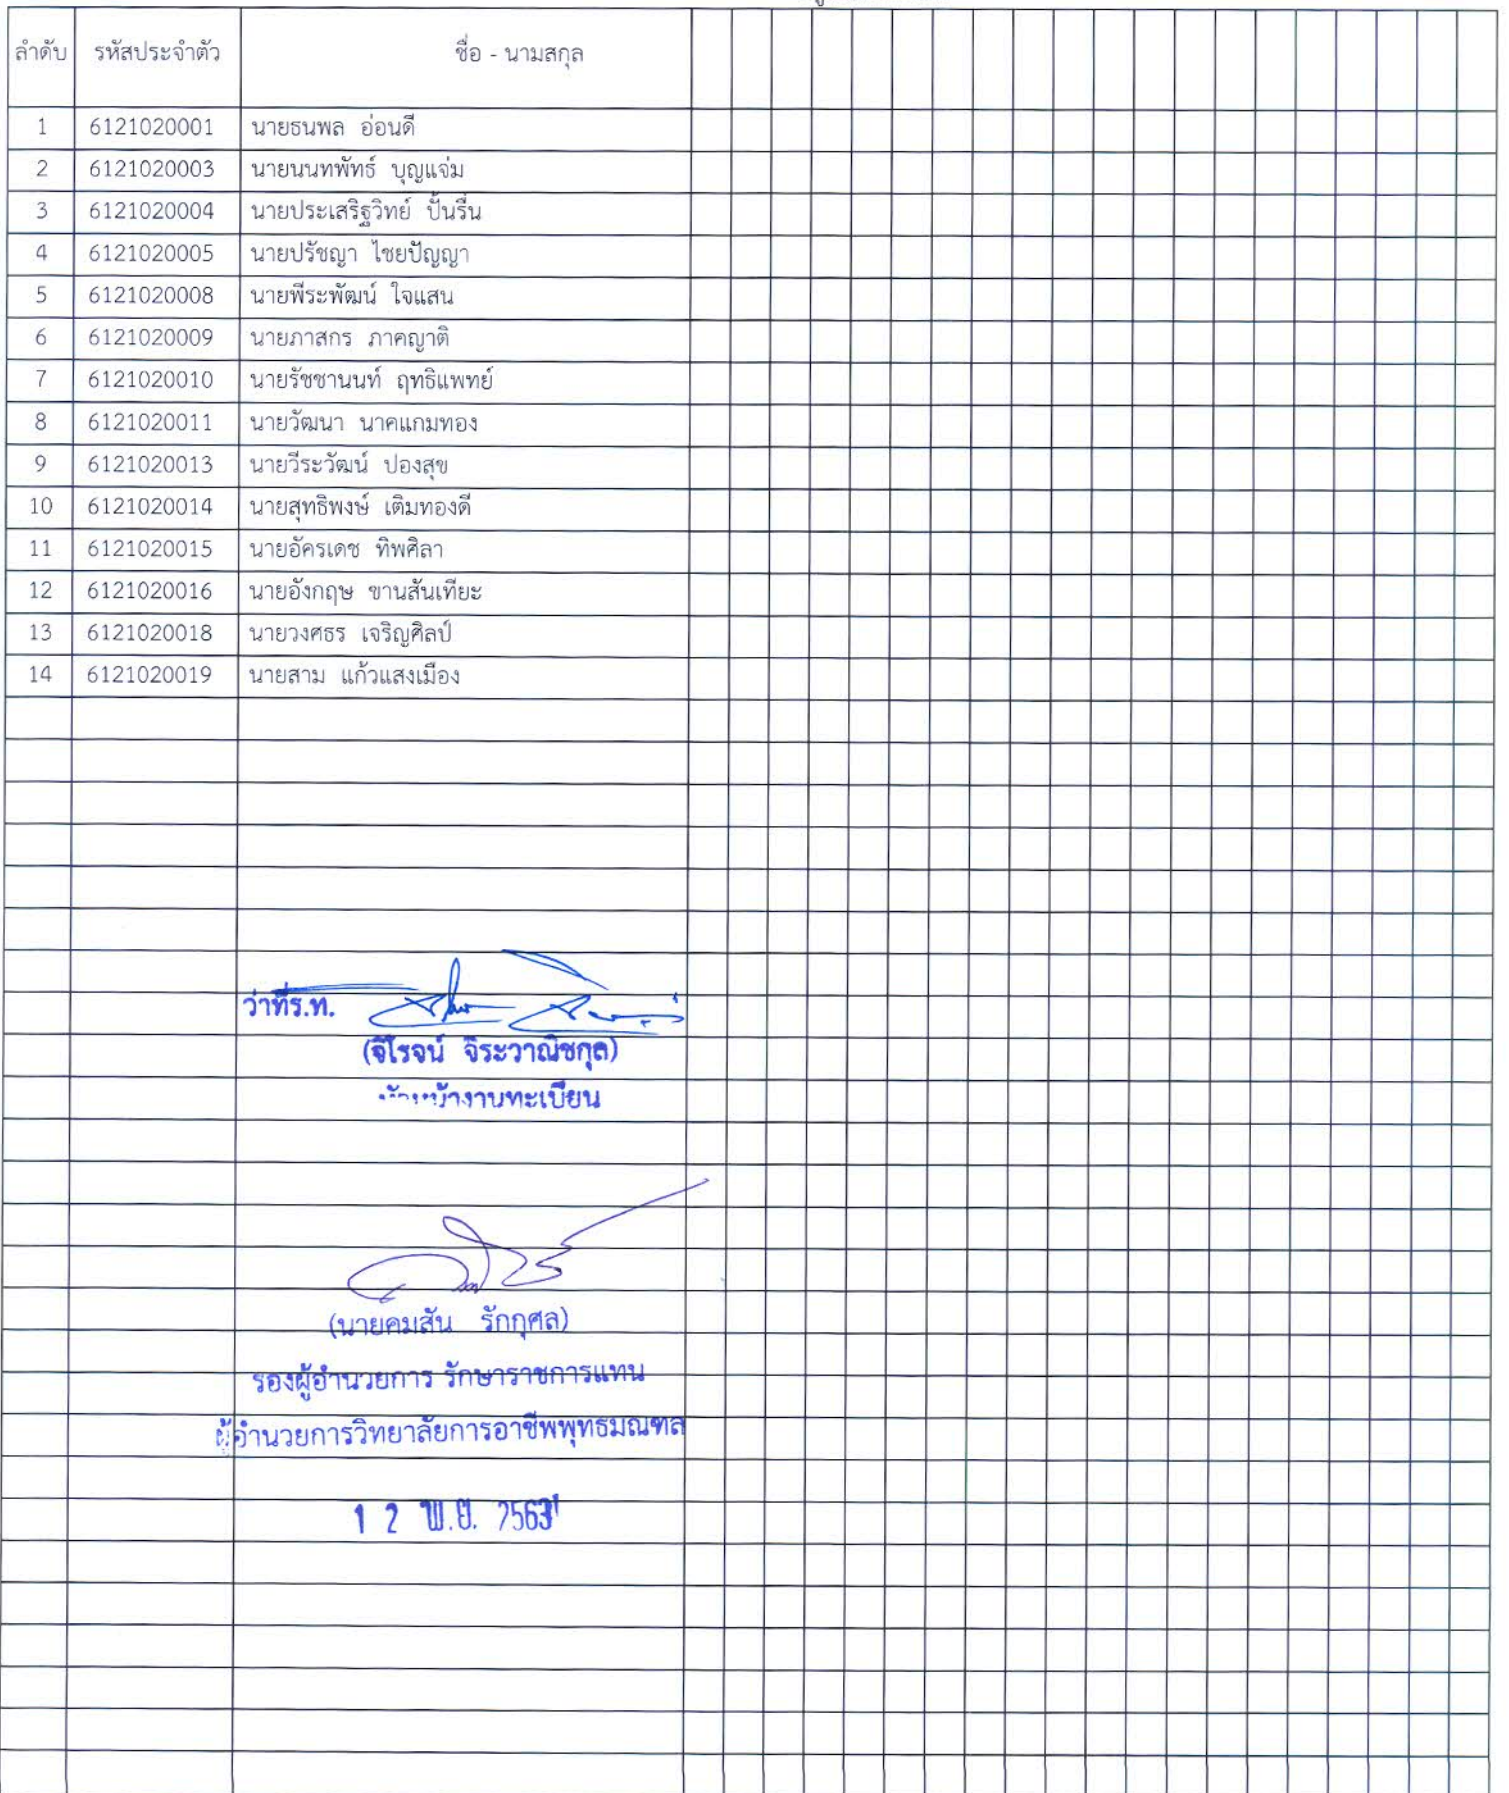 ลำดับ รหัสประจำตัว ชื่อ - นามสกุล
1 6121020001 นายธนพล อ่อนดี
2 6121020003 นายนนทพัทธ์ บุญแจ่ม
3 6121020004 นายประเสริฐวิทย์ ปั้นรื่น
4 6121020005 นายปรัชญา ไชยปัญญา
5 6121020008 นายพีระพัฒน์ ใจแสน
6 6121020009 นายภาสกร ภาคญาติ
7 6121020010 นายรัชชานนท์ ฤทธิแพทย์
8 6121020011 นายวัฒนา นาคแกมทอง
9 6121020013 นายวีระวัฒน์ ปองสุข
10 6121020014 นายสุทธิพงษ์ เติมทองดี
11 6121020015 นายอัครเดช ทิพศิลา
12 6121020016 นายอังกฤษ ขานสันเทียะ
13 6121020018 นายวงศธร เจริญศิลป์
14 6121020019 นายสาม แก้วแสงเมือง
ว่าที่ร.ท.
(จิโรจน์ จิระวาณิชกุล)
หัวหน้างานทะเบียน
(นายคมสัน รักกุศล)
รองผู้อำนวยการ รักษาราชการแทน
ผู้อำนวยการวิทยาลัยการอาชีพพุทธมณฑล
1 2 พ.ย. 2563